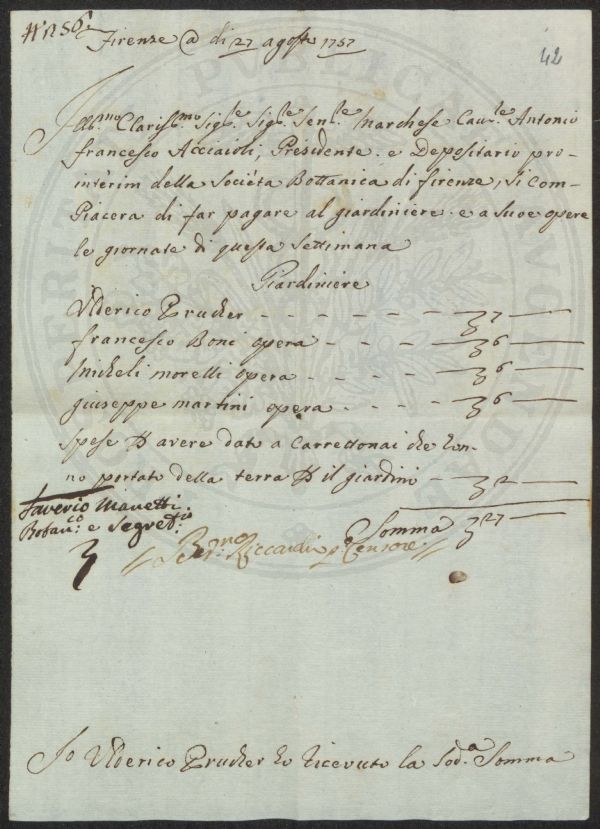 N.° 256.
Firenze @ di 27 agosto 1757
42
Ill.mo Clariss.mo Sig.le Sig.le Sen.le Marchese Cav.le Antonio
francesco Acciaioli, Presidente. e Depositario pro-
interim della Società Bottanica di firenze, si com-
Piacera di far pagare al giardiniere. e a suoe opere
le giornate di questa settimana
Giardiniere
Vlderico Prucker - - - - - - 7 —
francesco Boni opera - - - - 6 —
Mickeli morelli opera - - - - 6 —
giuseppe martini opera - - - 6 —
spese P avere dato a Carrettonai che han-
no portato della terra P il giardini - 2 —
Saverio Manetti
Botan.co e Segret.rio
Somma 27 —
Bern.no Riccardi Censore.
Io Vlderico Prucker ho ricevuto la sod.a Somma